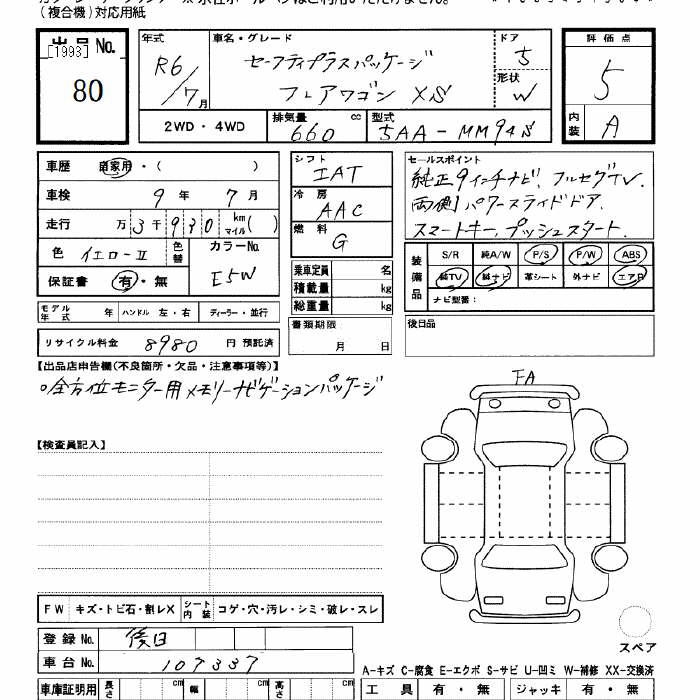 (複合機)対応用紙
出品 No.
[1993]
80
年式
R6/7月
車名・グレード
セーフティプラスパッケージ
フレアワゴン XS
ドア
5
形状
W
評価点
5
内装
A
2WD・4WD
排気量 cc
660
型式
5AA-MM94S
車歴 自家用・( )
車検 9年 7月
走行 万 3千930 km マイル( )
色 イエロー-II 色替
カラーNo.
E5W
保証書 有・無
シフト
IAT
冷房
AAC
燃料
G
乗車定員 名
積載量 kg
総重量 kg
書類期限
月 日
セールスポイント
純正9インチナビ、フルセグTV、
両側パワースライドドア、
スマートキー、プッシュスタート、
装備品
S/R 純A/W P/S P/W ABS
純TV 純ナビ 革シート 外ナビ エアB
ナビ型番:
後日品
モデル年式 年 ハンドル 左・右 ディーラー・並行
リサイクル料金 8980 円 預託済
【出品店申告欄(不良箇所・欠品・注意事項等)】
○全方位モニター用メモリーナビゲーションパッケージ
【検査員記入】
FA
FW キズ・トビ石・割レX シート内装 コゲ・穴・汚レ・シミ・破レ・スレ
登録 No. 後日
車台 No. 107337
スペア
A-キズ C-腐食 E-エクボ S-サビ U-凹ミ W-補修 XX-交換済
車庫証明用 長さ cm 幅 cm 高さ cm
工具 有・無 ジャッキ 有・無